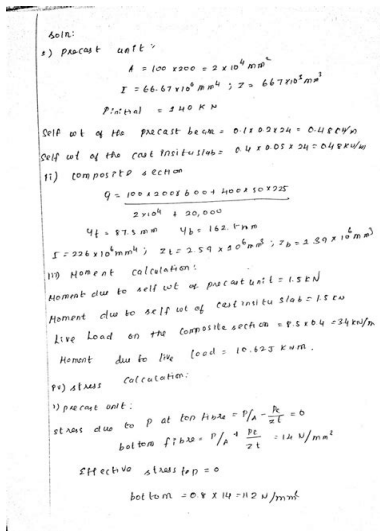 soln:
1) Precast unit :
A = 100 x 200 = 2 x 10⁴ mm²
I = 66.67 x 10⁶ mm⁴ ; Z = 667 x 10³ mm³
Pinitial = 240 KN
Self wt of the precast beam = 0.1 x 0.2 x 24 = 0.48 KN/m
Self wt of the cast insitu slab = 0.4 x 0.05 x 24 = 0.48 KN/m
ii) composite section
y = 100 x 200 x 600 + 400 x 50 x 225
2 x 10⁴ + 20,000
yt = 87.5 mm yb = 162.5 mm
I = 226 x 10⁶ mm⁴ ; Zt = 2.59 x 10⁶ mm³ ; Zb = 1.39 x 10⁶ mm³
iii) Moment calculation :
Moment due to self wt of precast unit = 1.5 KN
Moment due to self wt of cast insitu slab = 1.5 KN
Live Load on the composite section = 8.5 x 0.4 = 34 KN/m
Moment due to live load = 10.625 KNm.
iv) stress calculation:
1) precast unit :
stress due to P at top fibre = P/A - Pe/Zt = 0
bottom fibre = P/A + Pe/Zt = 14 N/mm²
Effective stress top = 0
bottom = 0.8 x 14 = 11.2 N/mm²